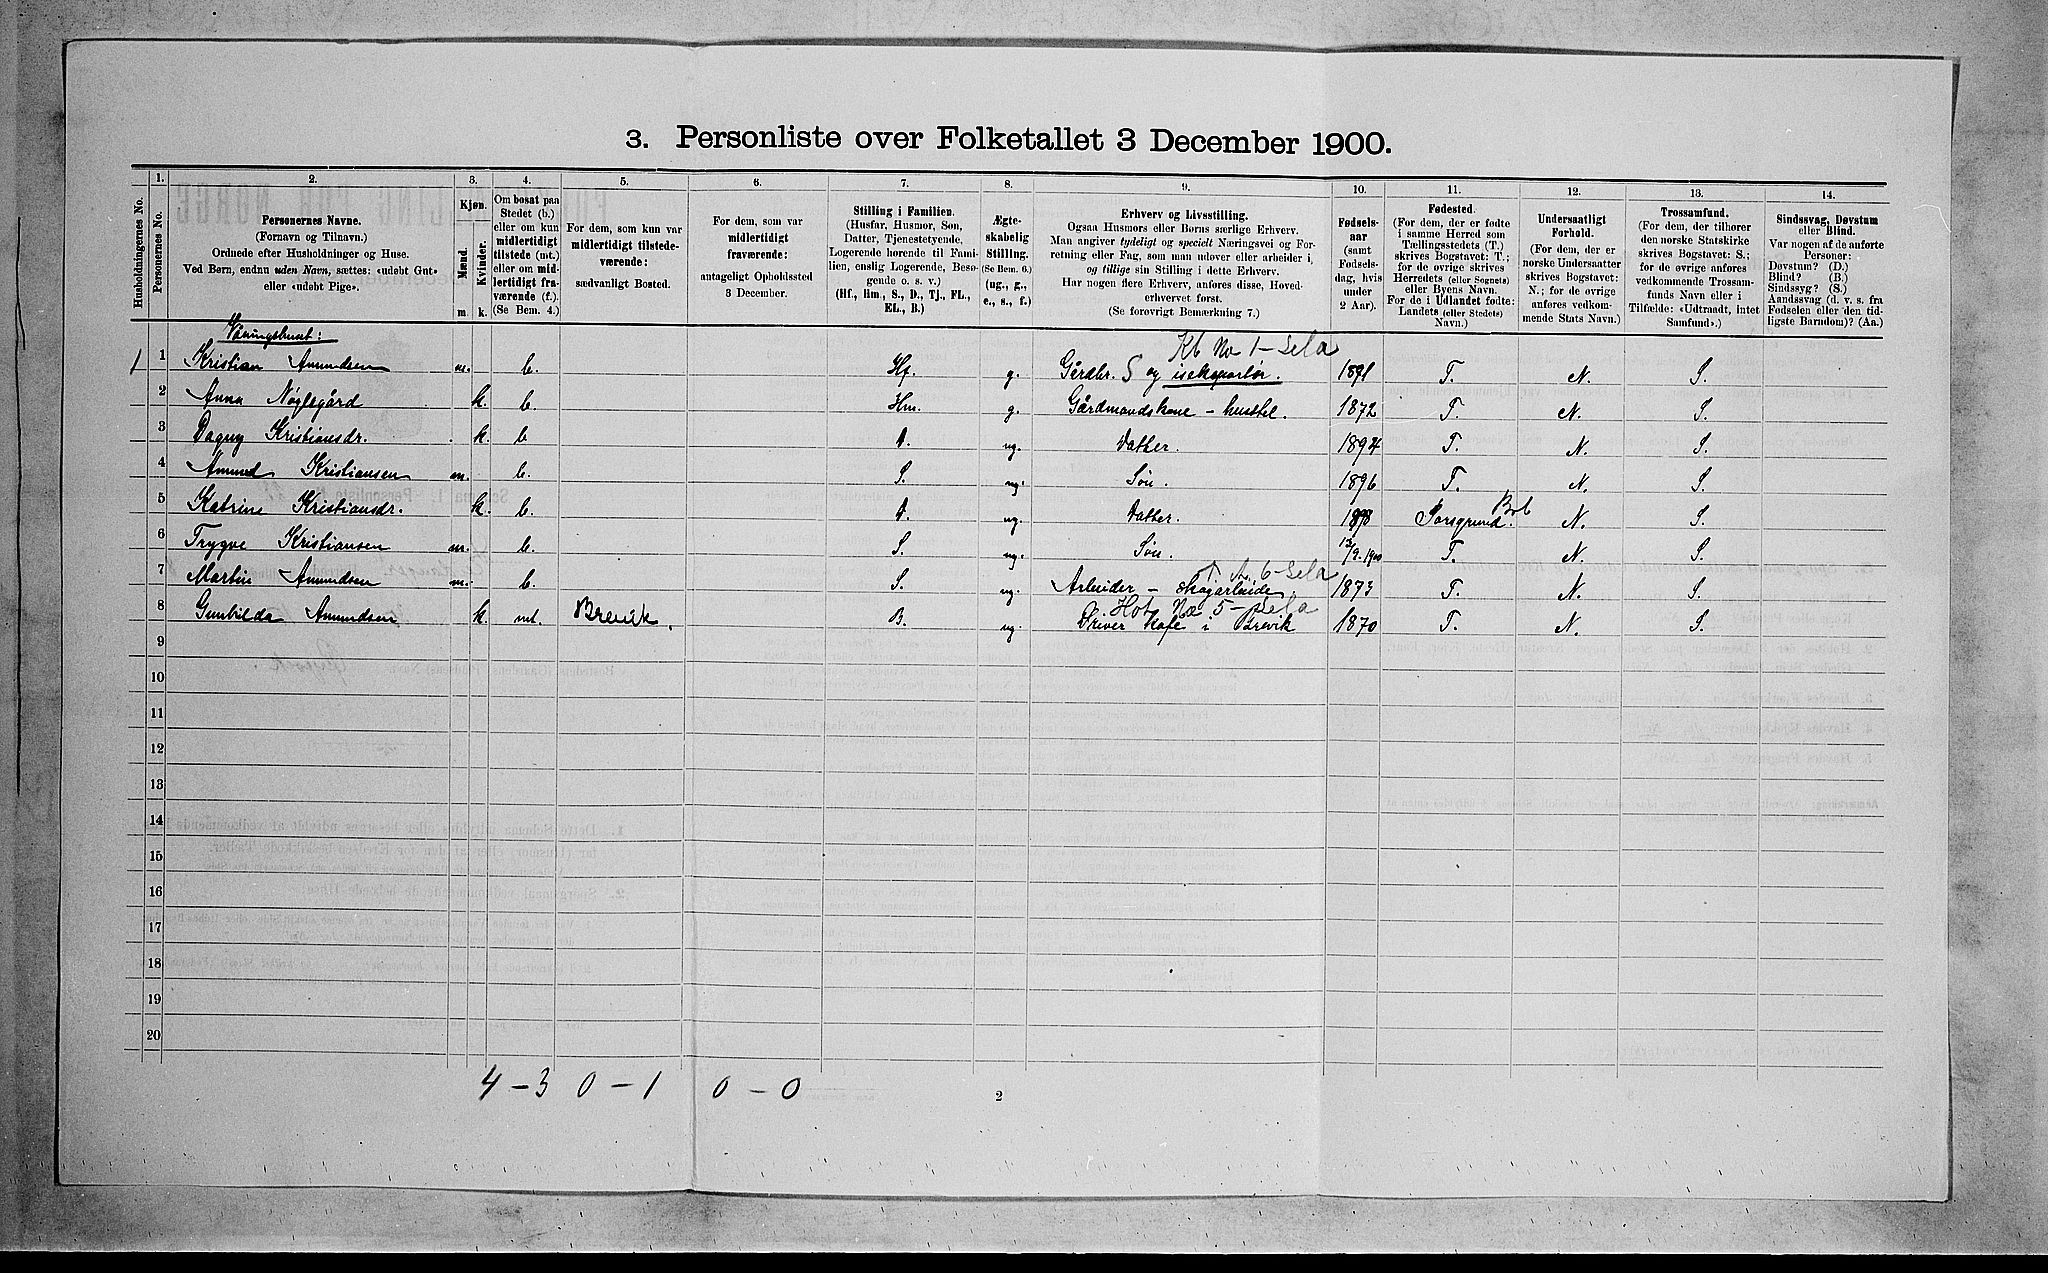 3. Personliste over Folketallet 3 December 1900.
Husholdningernes No.
1.
Personernes No.
2.
Personernes Navne.
(Fornavn og Tilnavn.)
Ordnede efter Husholdninger og Huse.
Ved Børn, endnu uden Navn, sættes: «udøbt Gut»
eller «udøbt Pige».
3.
Kjøn.
Mænd.
m.
Kvinder.
k.
4.
Om bosat paa
Stedet (b.)
eller om kun
midlertidigt
tilstede (mt.)
eller om mid-
lertidigt fra-
værende (f.).
(Se Bem. 4.)
5.
For dem, som kun var
midlertidigt tilstede-
værende:
sædvanligt Bosted.
6.
For dem, som var
midlertidigt
fraværende:
antageligt Opholdssted
3 December.
7.
Stilling i Familien.
(Husfar, Husmor, Søn,
Datter, Tjenestetyende,
Logerende hørende til Fami-
lien, enslig Logerende, Besø-
gende o. s. v.)
(Hf., Hm., S., D., Tj., FL.,
EL., B.)
8.
Ægte-
skabelig
Stilling.
(Se Bem. 6.)
(ug., g.,
e., s., f.)
9.
Erhverv og Livsstilling.
Ogsaa Husmors eller Børns særlige Erhverv.
Man angiver tydeligt og specielt Næringsvei og For-
retning eller Fag, som man udøver eller arbeider i,
og tillige sin Stilling i dette Erhverv.
Har nogen flere Erhverv, anføres disse, Hoved-
erhvervet først.
(Se forøvrigt Bemærkning 7.)
10.
Fødsels-
aar
(samt
Fødsels-
dag, hvis
under
2 Aar).
11.
Fødested.
(For dem, der er fødte
i samme Herred som
Tællingsstedets (T.)
skrives Bogstavet: T.;
for de øvrige skrives
Herredets (eller Sognets)
eller Byens Navn.
For de i Udlandet fødte:
Landets (eller Stedets)
Navn.)
12.
Undersaatligt
Forhold.
(For dem, der er
norske Undersaatter
skrives Bogstavet:
N.; for de øvrige
anføres vedkom-
mende Stats Navn.)
13.
Trossamfund.
(For dem, der tilhører
den norske Statskirke
skrives Bogstavet: S.;
for de øvrige anføres
vedkommende Trossam-
funds Navn eller i
Tilfælde: «Udtraadt, intet
Samfund».)
14.
Sindssvag, Døvstum
eller Blind.
Var nogen af de anførte
Personer:
Døvstum? (D.)
Blind? (B.)
Sindssyg? (S.)
Aandssvag (d. v. s. fra
Fødselen eller den tid-
ligste Barndom)? (Aa.)
Våningshuset:
Kb No 1 - Sela
1 1 Kristian Amundsen m. b. Hf. g. Gårdbr. S og isexportør. 1871 T. N. S.
2 Anna Nøglegård k. b. Hm. g. Gårdmandskone - husstel. 1872 T. N. S.
3 Dagny Kristiansdr. k. b D. ug. Datter. 1894 T. N. S.
4 Amund Kristiansen m. b. S. ug. Søn. 1896 T. N. S.
Bob
5 Katrine Kristiansdr. k. b. D. ug. Datter. 1898 Porsgrund. N. S.
6 Trygve Kristiansen m. b. S. ug. Søn. 12/9.1900 T. N. S.
6 - Sela
7 Martin Amundsen m. b. S. ug. Arbeider - skogarbeide 1873 T. N. S.
Hot No 5 - Sela
8 Gunhilda Amundsen k. mt. Brevik. B. ug. Driver kafe i Brevik 1870 T. N. S.
9
10
11
12
13
14
15
16
17
18
19
20
4 - 3 0 - 1 0 - 0
2